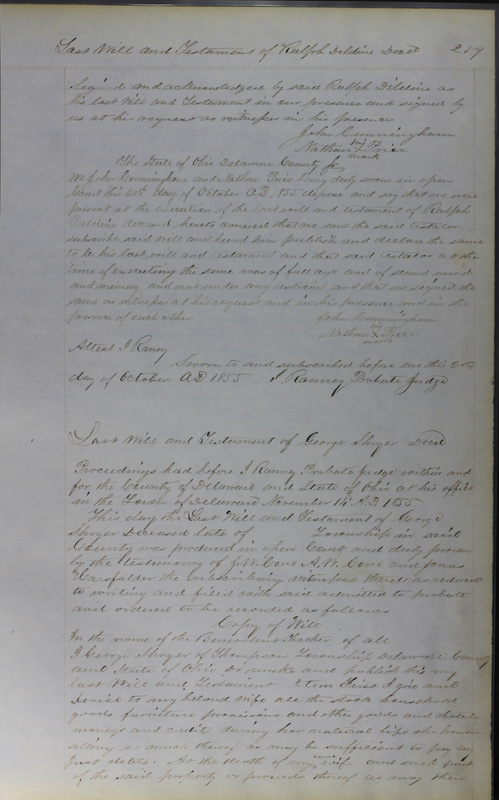 Last Will and Testament of Ralph Dildine Decd 259
Signed and acknowledged by said Ralph Dildine as
his last Will and Testament in our presence and signed by
us at his request as witnesses in his presence
John Cunningham
his
Nathan X Price
mark
The State of Ohio Delaware County ss
We John Cunningham and Nathan Price being duly sworn in open
Court this day of October A.D. 1855 depose and say that we were
present at the execution of the last will and testament of Ralph
Dildine deceased hereto annexed that we saw the said testator
subscribe said will and heard him publish and declare the same
to be his last will and testament and that said testator at the
time of executing the same was of full age and of sound mind
and memory and not under any restraint and that we signed the
same as witnesses at his request and in his presence and in the
presence of each other
John Cunningham
his
Nathan X Price
mark
Attest I Ranney
Sworn to and subscribed before me this
day of October AD 1855 I Ranney Probate Judge
Last Will and Testament of George Shoyer Decd
Proceedings had before I Ranney Probate judge within and
for the County of Delaware and State of Ohio at his office
in the Town of Delaware November 14 A.D. 1855
This day the Last Will and Testament of George
Shoyer Deceased late of Township in said
County was produced in open Court and duly proven
by the testimony of J.W. Cone A.W. Cone and Jonas
the subscribing witnesses thereto as reduced
to writing and filed with said admitted to probate
and ordered to be recorded as follows
Copy of Will
In the name of the Benevolent Father of all
I George Shoyer of Thompson Township Delaware County
and State of Ohio Do make and publish this my
last Will and Testament Item First I give and
devise to my beloved wife all the stock household
goods furniture provisions and other goods and chattels
moneys and credits during her natural life she however
selling so much thereof as may be sufficient to pay my
just debts. At the death of my said wife and such part
of the said property or proceeds thereof as may then